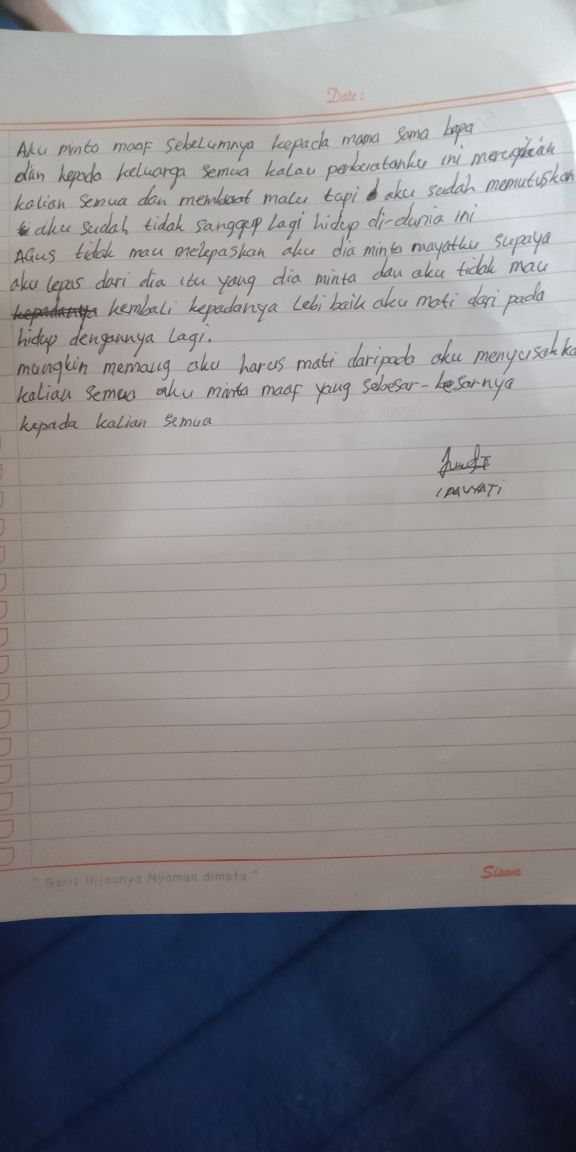 Date:
Aku minto maaf sebelumnya kepada mama sama bapa
dan kepada keluarga semua kalau perbuatanku ini merugikan
kalian semua dan membuat malu tapi aku sudah memutuskan
aku sudah tidak sanggup lagi hidup di-dunia ini
AGus tidak mau melepaskan aku dia minta mayatku supaya
aku lepas dari dia itu yang dia minta dan aku tidak mau
kepadanya kembali kepadanya lebi baik aku mati dari pada
hidup dengannya lagi.
mungkin memang aku harus mati daripada aku menyusahka
kalian semua aku minta maaf yang sebesar-besarnya
kepada kalian semua
IDAWATI
"Garis Hijaunya Nyaman dimata"
Siswa